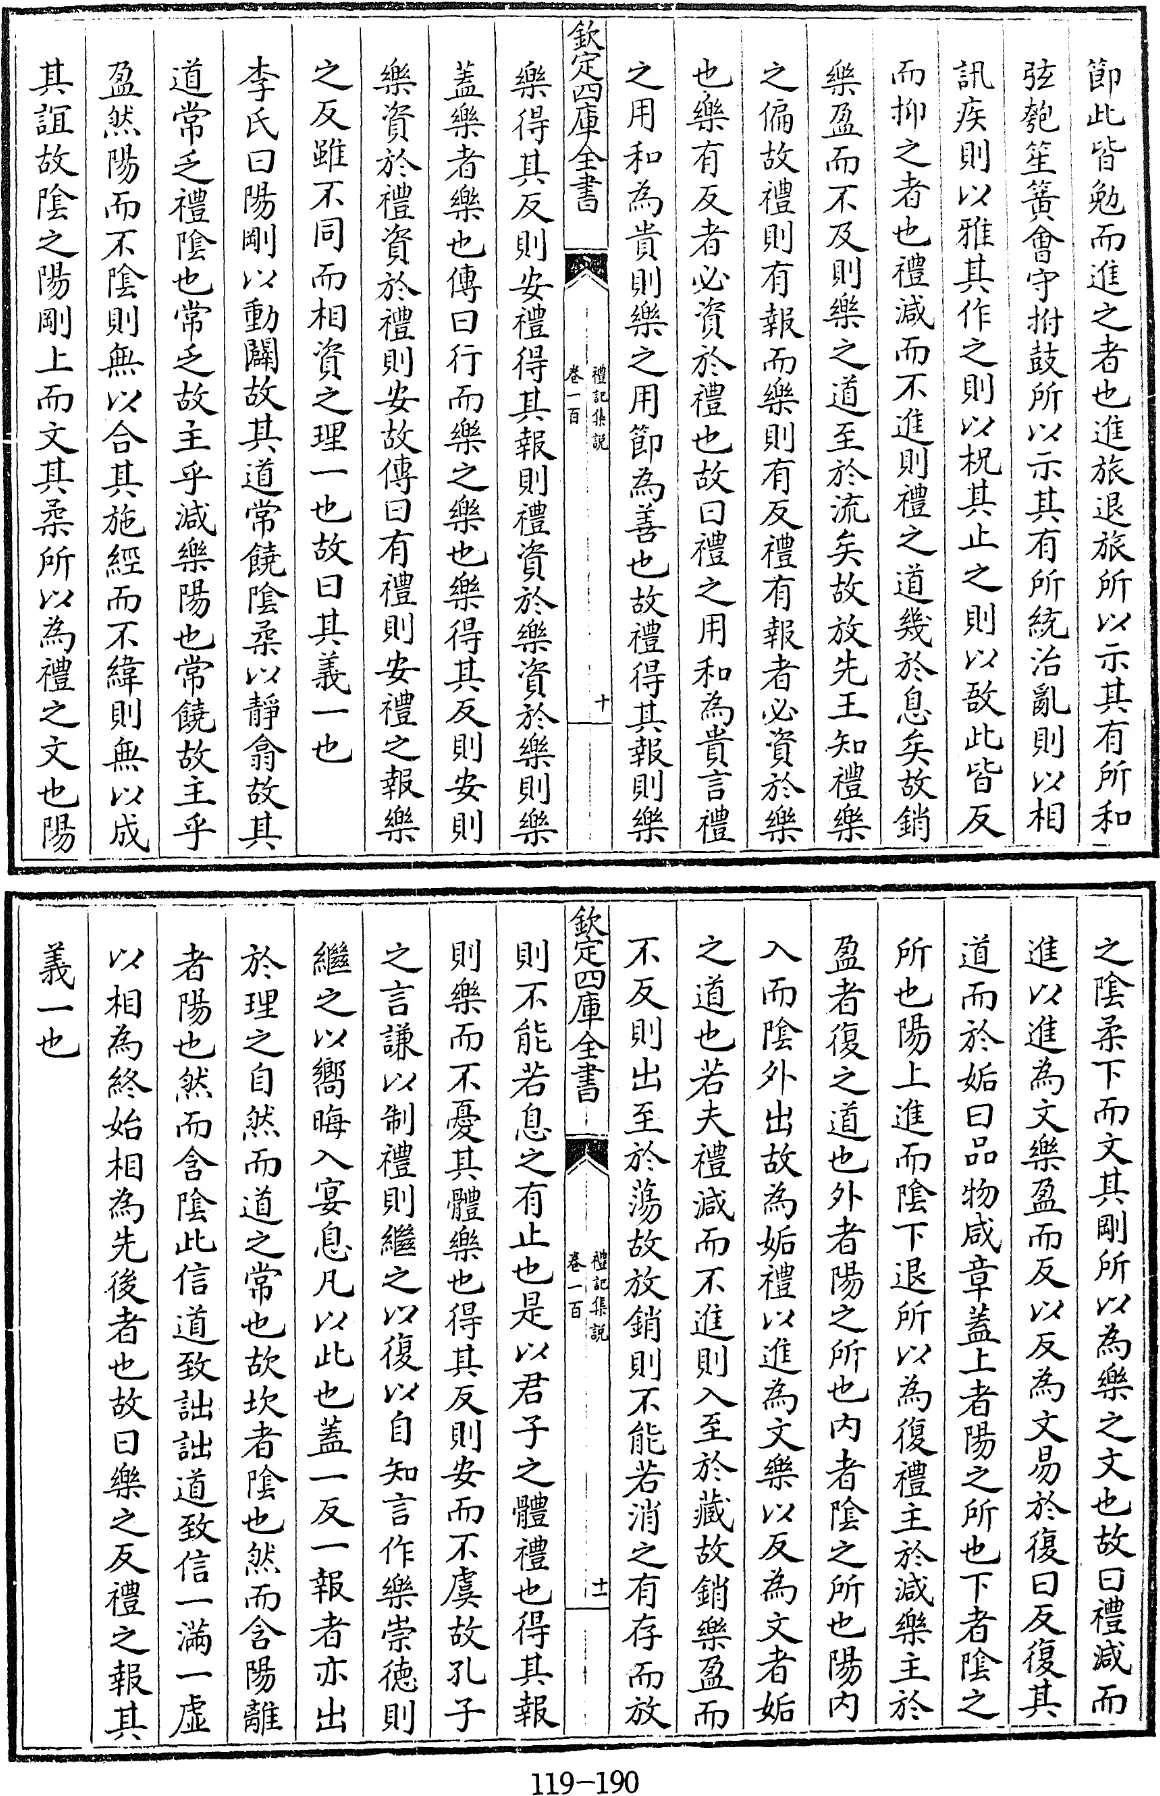 節此皆勉而進之者也進旅退旅所以示其有所和
弦匏笙簧會守拊鼓所以示其有所統治亂則以相
訊疾則以雅其作之則以柷其止之則以敔此皆反
而抑之者也禮減而不進則禮之道幾於息矣故銷
樂盈而不反則樂之道至於流矣故放先王知禮樂
之偏故禮則有報而樂則有反禮有報者必資於樂
也樂有反者必資於禮也故曰禮之用和為貴言禮
之用和為貴則樂之用節為善也故禮得其報則樂
欽定四庫全書
禮記集說
卷一百
十
樂得其反則安禮得其報則禮資於樂資於樂則樂
蓋樂者樂也傳曰行而樂之樂也樂得其反則安則
樂資於禮資於禮則安故傳曰有禮則安禮之報樂
之反雖不同而相資之理一也故曰其義一也
李氏曰陽剛以動闢故其道常饒陰柔以靜翕故其
道常乏禮陰也常乏故主乎減樂陽也常饒故主乎
盈然陽而不陰則無以合其施經而不緯則無以成
其誼故陰之陽剛上而文其柔所以為禮之文也陽
之陰柔下而文其剛所以為樂之文也故曰禮減而
進以進為文樂盈而反以反為文易於復曰反復其
道而於姤曰品物咸章蓋上者陽之所也下者陰之
所也陽上進而陰下退所以為復禮主於減樂主於
盈者復之道也外者陽之所也內者陰之所也陽內
入而陰外出故為姤禮以進為文樂以反為文者姤
之道也若夫禮減而不進則入至於藏故銷樂盈而
不反則出至於蕩故放銷則不能若消之有存而放
欽定四庫全書
禮記集說
卷一百
十一
則不能若息之有止也是以君子之體禮也得其報
則樂而不憂其體樂也得其反則安而不虞故孔子
之言謙以制禮則繼之以復以自知言作樂崇德則
繼之以嚮晦入宴息凡以此也蓋一反一報者亦出
於理之自然而道之常也故坎者陰也然而含陽離
者陽也然而含陰此信道致詘詘道致信一滿一虛
以相為終始相為先後者也故曰樂之反禮之報其
義一也
119-190